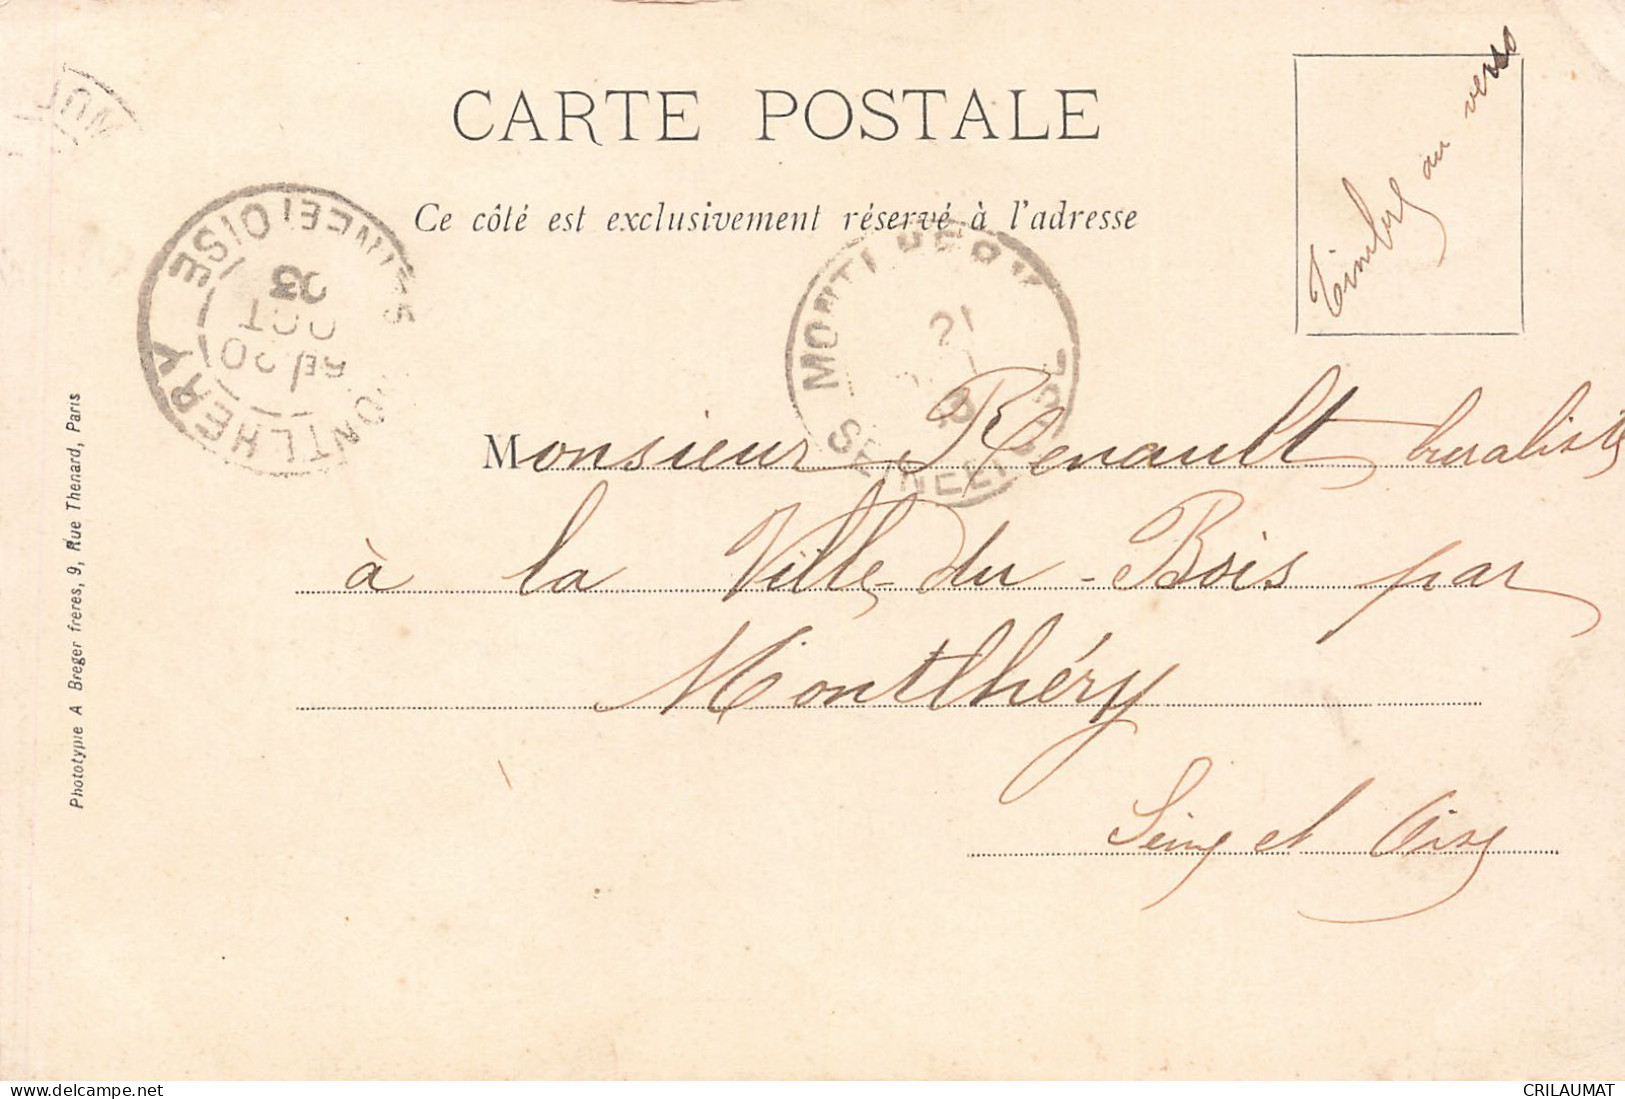 CARTE POSTALE
Ce côté est exclusivement réservé à l'adresse
Timbre au verso
MONTLHERY SEINE ET OISE
20
OCT
03
MONTLHERY
21
Monsieur Renault buraliste
à la Ville-du-Bois par
Montlhéry
Seine et Oise
Phototypie A Breger freres, 9, Rue Thenard, Paris
www.delcampe.net
CRILAUMAT